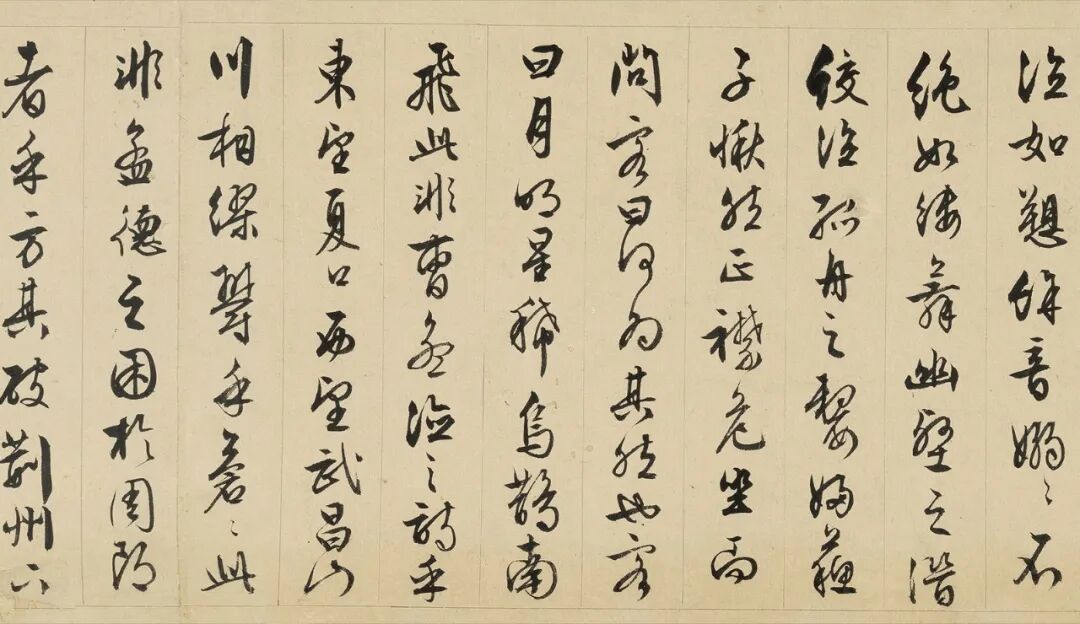 泣如愬餘音嫋〻不
絕如縷舞幽壑之潛
蛟泣孤舟之嫠婦蘇
子愀然正襟危坐而
問客曰何為其然也客
曰月明星稀烏鵲南
飛此非曹孟德之詩乎
東望夏口西望武昌山
川相繆鬱乎蒼〻此
非孟德之困於周郎
者乎方其破荊州下